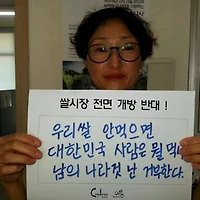 쌀시장 전면 개방 반대 !
우리쌀 안먹으면
대한민국 사람은 뭘 먹나
남의 나라껏 난 거부한다.